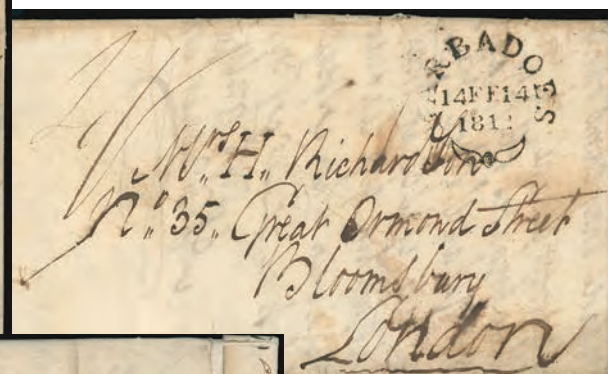 BARBADOES
14FE14
181
2/
Mrs. H. Richardson
No. 35. Great Ormond Street
Bloomsbury
London